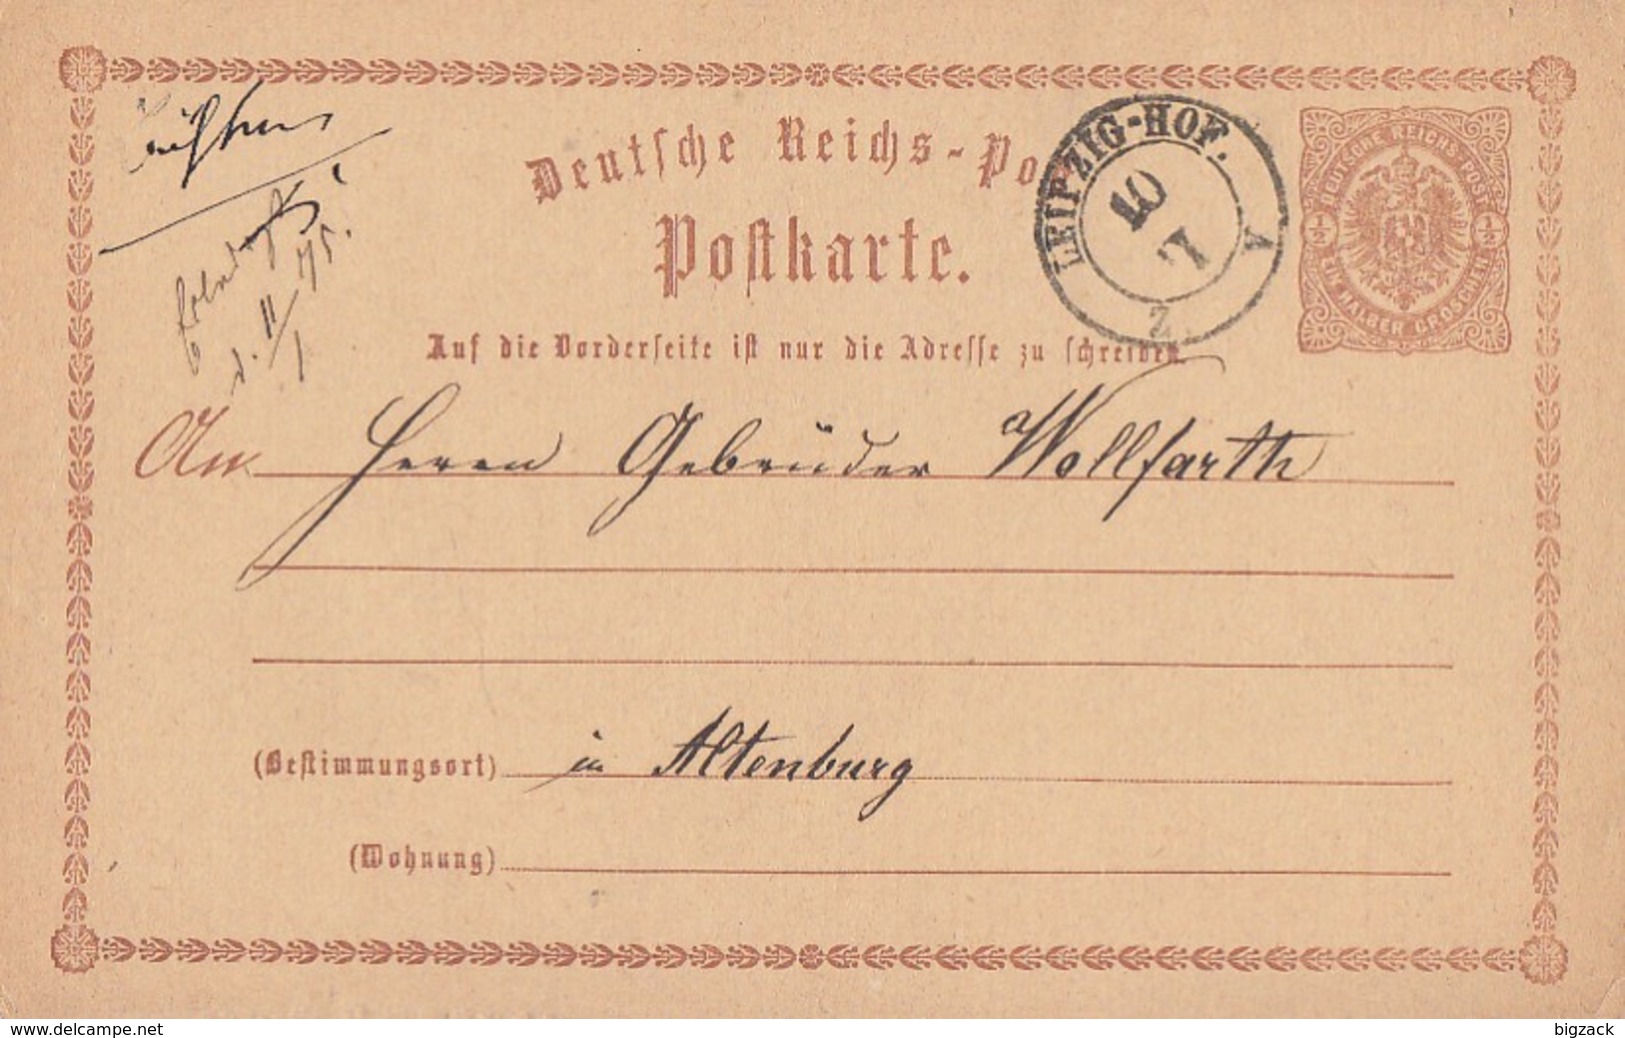 Deutsche Reichs-Po
Postkarte.
LEIPZIG-HOF.
10
Z.
DEUTSCHE REICHS-POST
½ ½
EIN HALBER GROSCHEN
d. 11/1 75.
Auf die Vorderseite ist nur die Adresse zu schreiben.
An Herren Gebrüder Wollfarth
(Bestimmungsort) in Altenburg
(Wohnung)
www.delcampe.net
bigzack